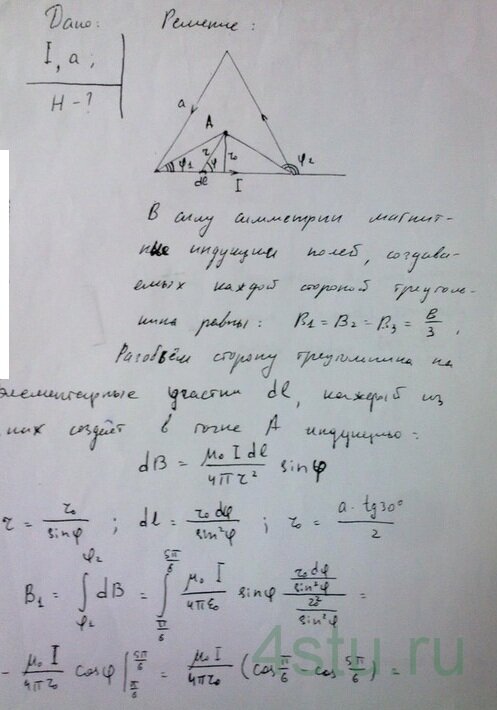 Дано:
Решение:
I, a;
H - ?
a
A
r
r₀
φ₁
φ
φ₂
dl
I
В силу симметрии магнит-
ные индукции полей, создава-
емых каждой стороной треуголь-
ника равны: B₁ = B₂ = B₃ = B/3,
Разобьём сторону треугольника на
элементарные участки dl, каждый из
них создаёт в точке A индукцию:
dB = μ₀ I dl / 4πr² sinφ
r = r₀ / sinφ ; dl = r₀ dφ / sin²φ ; r₀ = a · tg30° / 2
B₁ = ∫_{φ₂}^{φ₂} dB = ∫_{π/6}^{5π/6} μ₀ I / 4πε₀ sinφ (r₀ dφ / sin²φ) / (r₀² / sin²φ) =
- μ₀ I / 4πr₀ cosφ |_{π/6}^{5π/6} = μ₀ I / 4πr₀ (cos π/6 cos 5π/6) =
4stu.ru